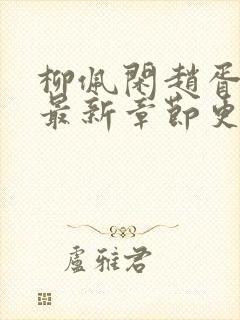 柳佩閑趙胥
最新章節更
盧雅君